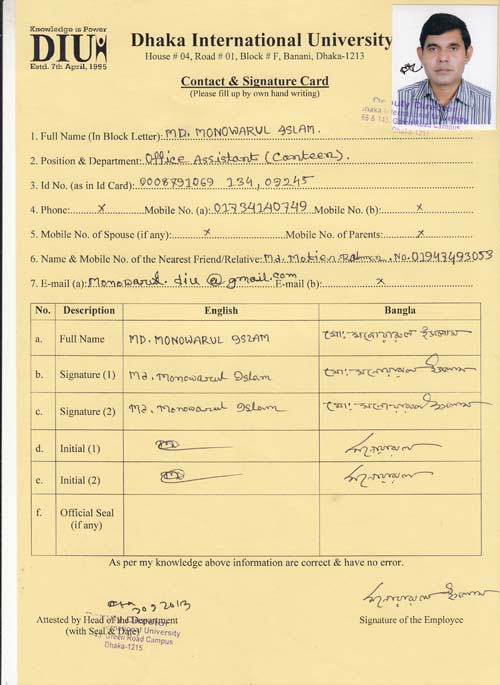 Knowledge is Power
DIU
Estd. 7th April, 1995
Dhaka International University
House # 04, Road # 01, Block # F, Banani, Dhaka-1213
Contact & Signature Card
(Please fill up by own hand writing)
Deputy Director
Dhaka International University
Green Road Campus
1. Full Name (In Block Letter): MD. MONOWARUL ISLAM.
2. Position & Department: Office Assistant (Canteen).
3. Id No. (as in Id Card): 0008791069 134, 09245
4. Phone: x Mobile No. (a): 01734140749 Mobile No. (b): x
5. Mobile No. of Spouse (if any): x Mobile No. of Parents: x
6. Name & Mobile No. of the Nearest Friend/Relative: Md. Rahman, No. 01947493053
7. E-mail (a): Monowarul. diu @ gmail.com E-mail (b): x
No. Description English Bangla
a. Full Name MD. MONOWARUL ISLAM মো: মনোয়ারুল ইসলাম
b. Signature (1) Md. Monowarul Islam মো: মনোয়ারুল ইসলাম
c. Signature (2) Md. Monowarul Islam মো: মনোয়ারুল ইসলাম
d. Initial (1) মনোয়ারুল
e. Initial (2) মনোয়ারুল
f. Official Seal
(if any)
As per my knowledge above information are correct & have no error.
2013 মনোয়ারুল ইসলাম
Attested by Head of the Department Signature of the Employee
(with Seal & Date)
International University
Green Road Campus
Dhaka-1215